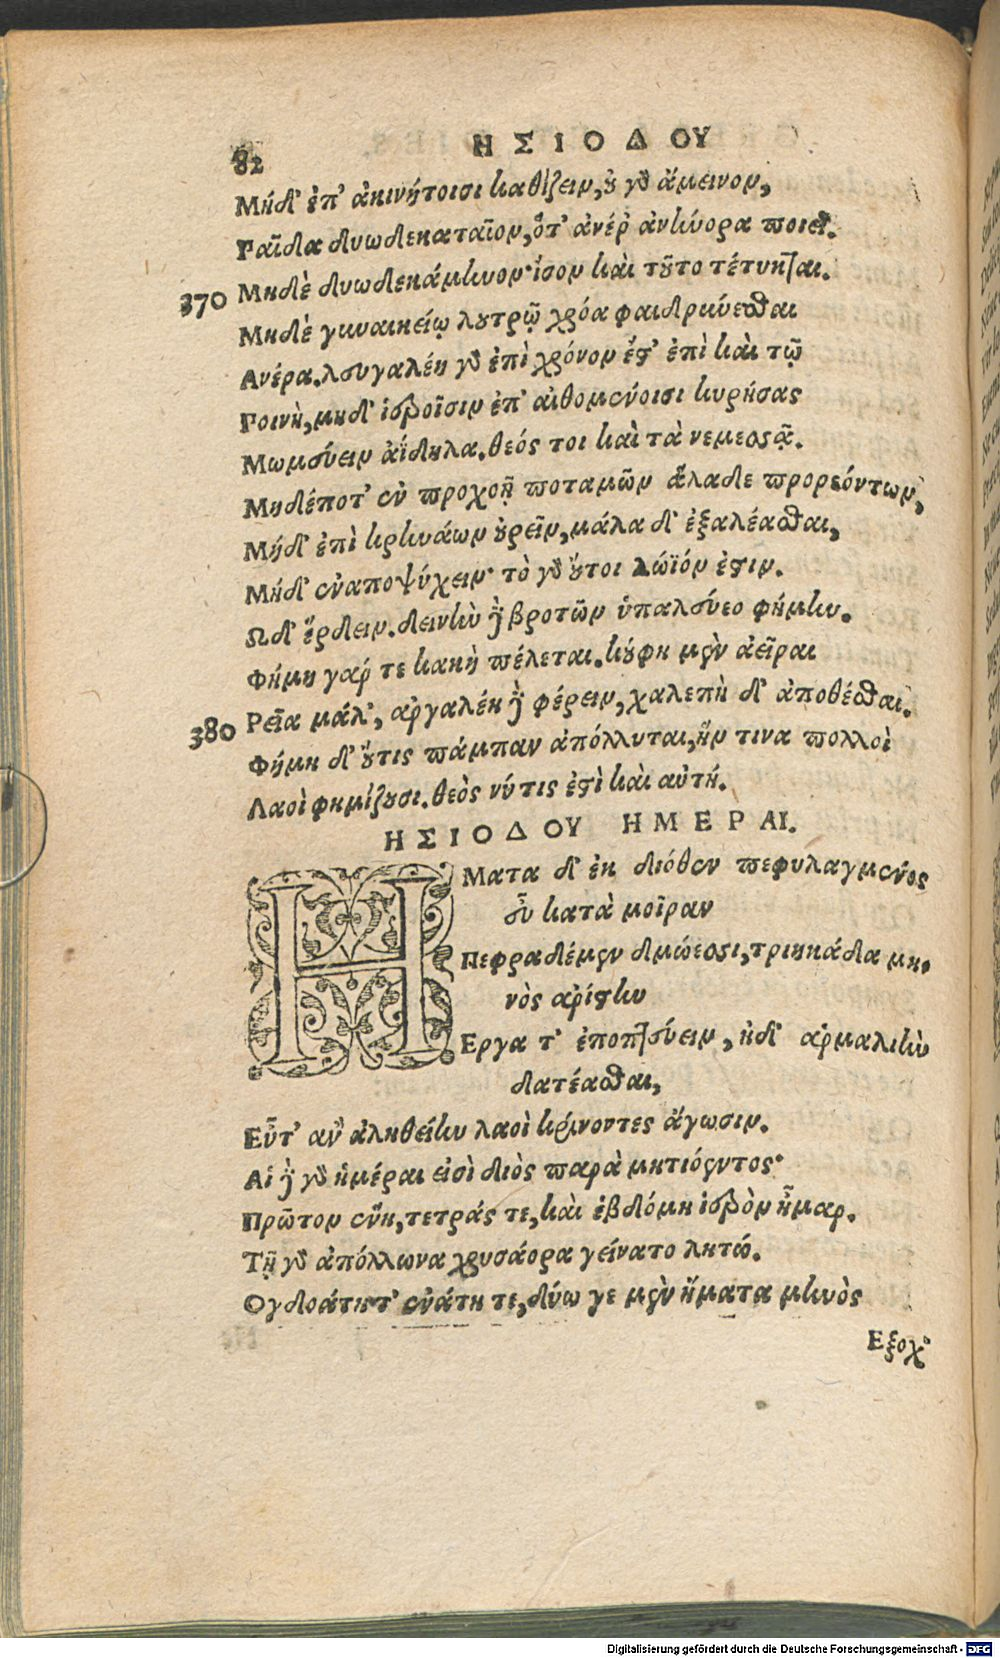 82 ΗΣΙΟΔΟΥ
Μήδ' ἐπ' ἀκινήτοισι καθίζειν, οὐ γὰρ ἄμεινον,
Παῖδα δυωδεκαταῖον, ὅτ' ἀνέρ' ἀνήνορα ποιεῖ.
370 Μηδὲ δυωδεκάμηνον· ἴσον καὶ τοῦτο τέτυκται.
Μηδὲ γυναικείῳ λουτρῷ χρόα φαιδρύνεσθαι
Ανέρα. λευγαλέη γὰρ ἐπὶ χρόνον ἔστ' ἐπὶ καὶ τῷ
Ποινὴ, μηδ' ἱεροῖσιν ἐπ' αἰθομένοισι κυρήσας
Μωμεύειν ἀΐδηλα. θεός τοι καὶ τὰ νεμεσσᾷ.
Μηδέποτ' ἐν προχοῇ ποταμῶν ἅλαδε προρεόντων,
Μήδ' ἐπὶ κρηνάων οὐρεῖν, μάλα δ' ἐξαλέασθαι,
Μήδ' ἐναποψύχειν· τὸ γὰρ οὔτοι λώϊόν ἐστιν.
Ωδ' ἔρδειν. δεινὴν δὲ βροτῶν ὑπαλεύεο φήμην.
Φήμη γάρ τε κακὴ πέλεται. κούφη μὲν ἀεῖραι
380 Ρεῖα μάλ', ἀργαλέη δὲ φέρειν, χαλεπὴ δ' ἀποθέσθαι.
Φήμη δ' οὔτις πάμπαν ἀπόλλυται, ἥν τινα πολλοὶ
Λαοὶ φημίζουσι. θεὸς νύ τις ἐστὶ καὶ αὐτή.
ΗΣΙΟΔΟΥ ΗΜΕΡΑΙ.
ΗΜατα δ' ἐκ διόθεν πεφυλαγμένος
εὖ κατὰ μοῖραν
Πεφραδέμεν δμώεσσι, τριηκάδα μη-
νὸς ἀρίστην
Εργα τ' ἐποπτεύειν, ἠδ' ἁρμαλιὴν
δατέασθαι,
Εὖτ' ἂν ἀληθείην λαοὶ κρίνοντες ἄγωσιν.
Αἱ δὲ γὰρ ἡμέραι εἰσὶ διὸς παρὰ μητιόεντος·
Πρῶτον ἕνη, τετράς τε, καὶ ἑβδόμη ἱερὸν ἦμαρ.
Τῇ γὰρ ἀπόλλωνα χρυσάορα γείνατο λητώ.
Ογδοάτη τ' ἐνάτη τε, δύω γε μὲν ἤματα μηνὸς
Εξοχ'
Digitalisierung gefördert durch die Deutsche Forschungsgemeinschaft - DFG